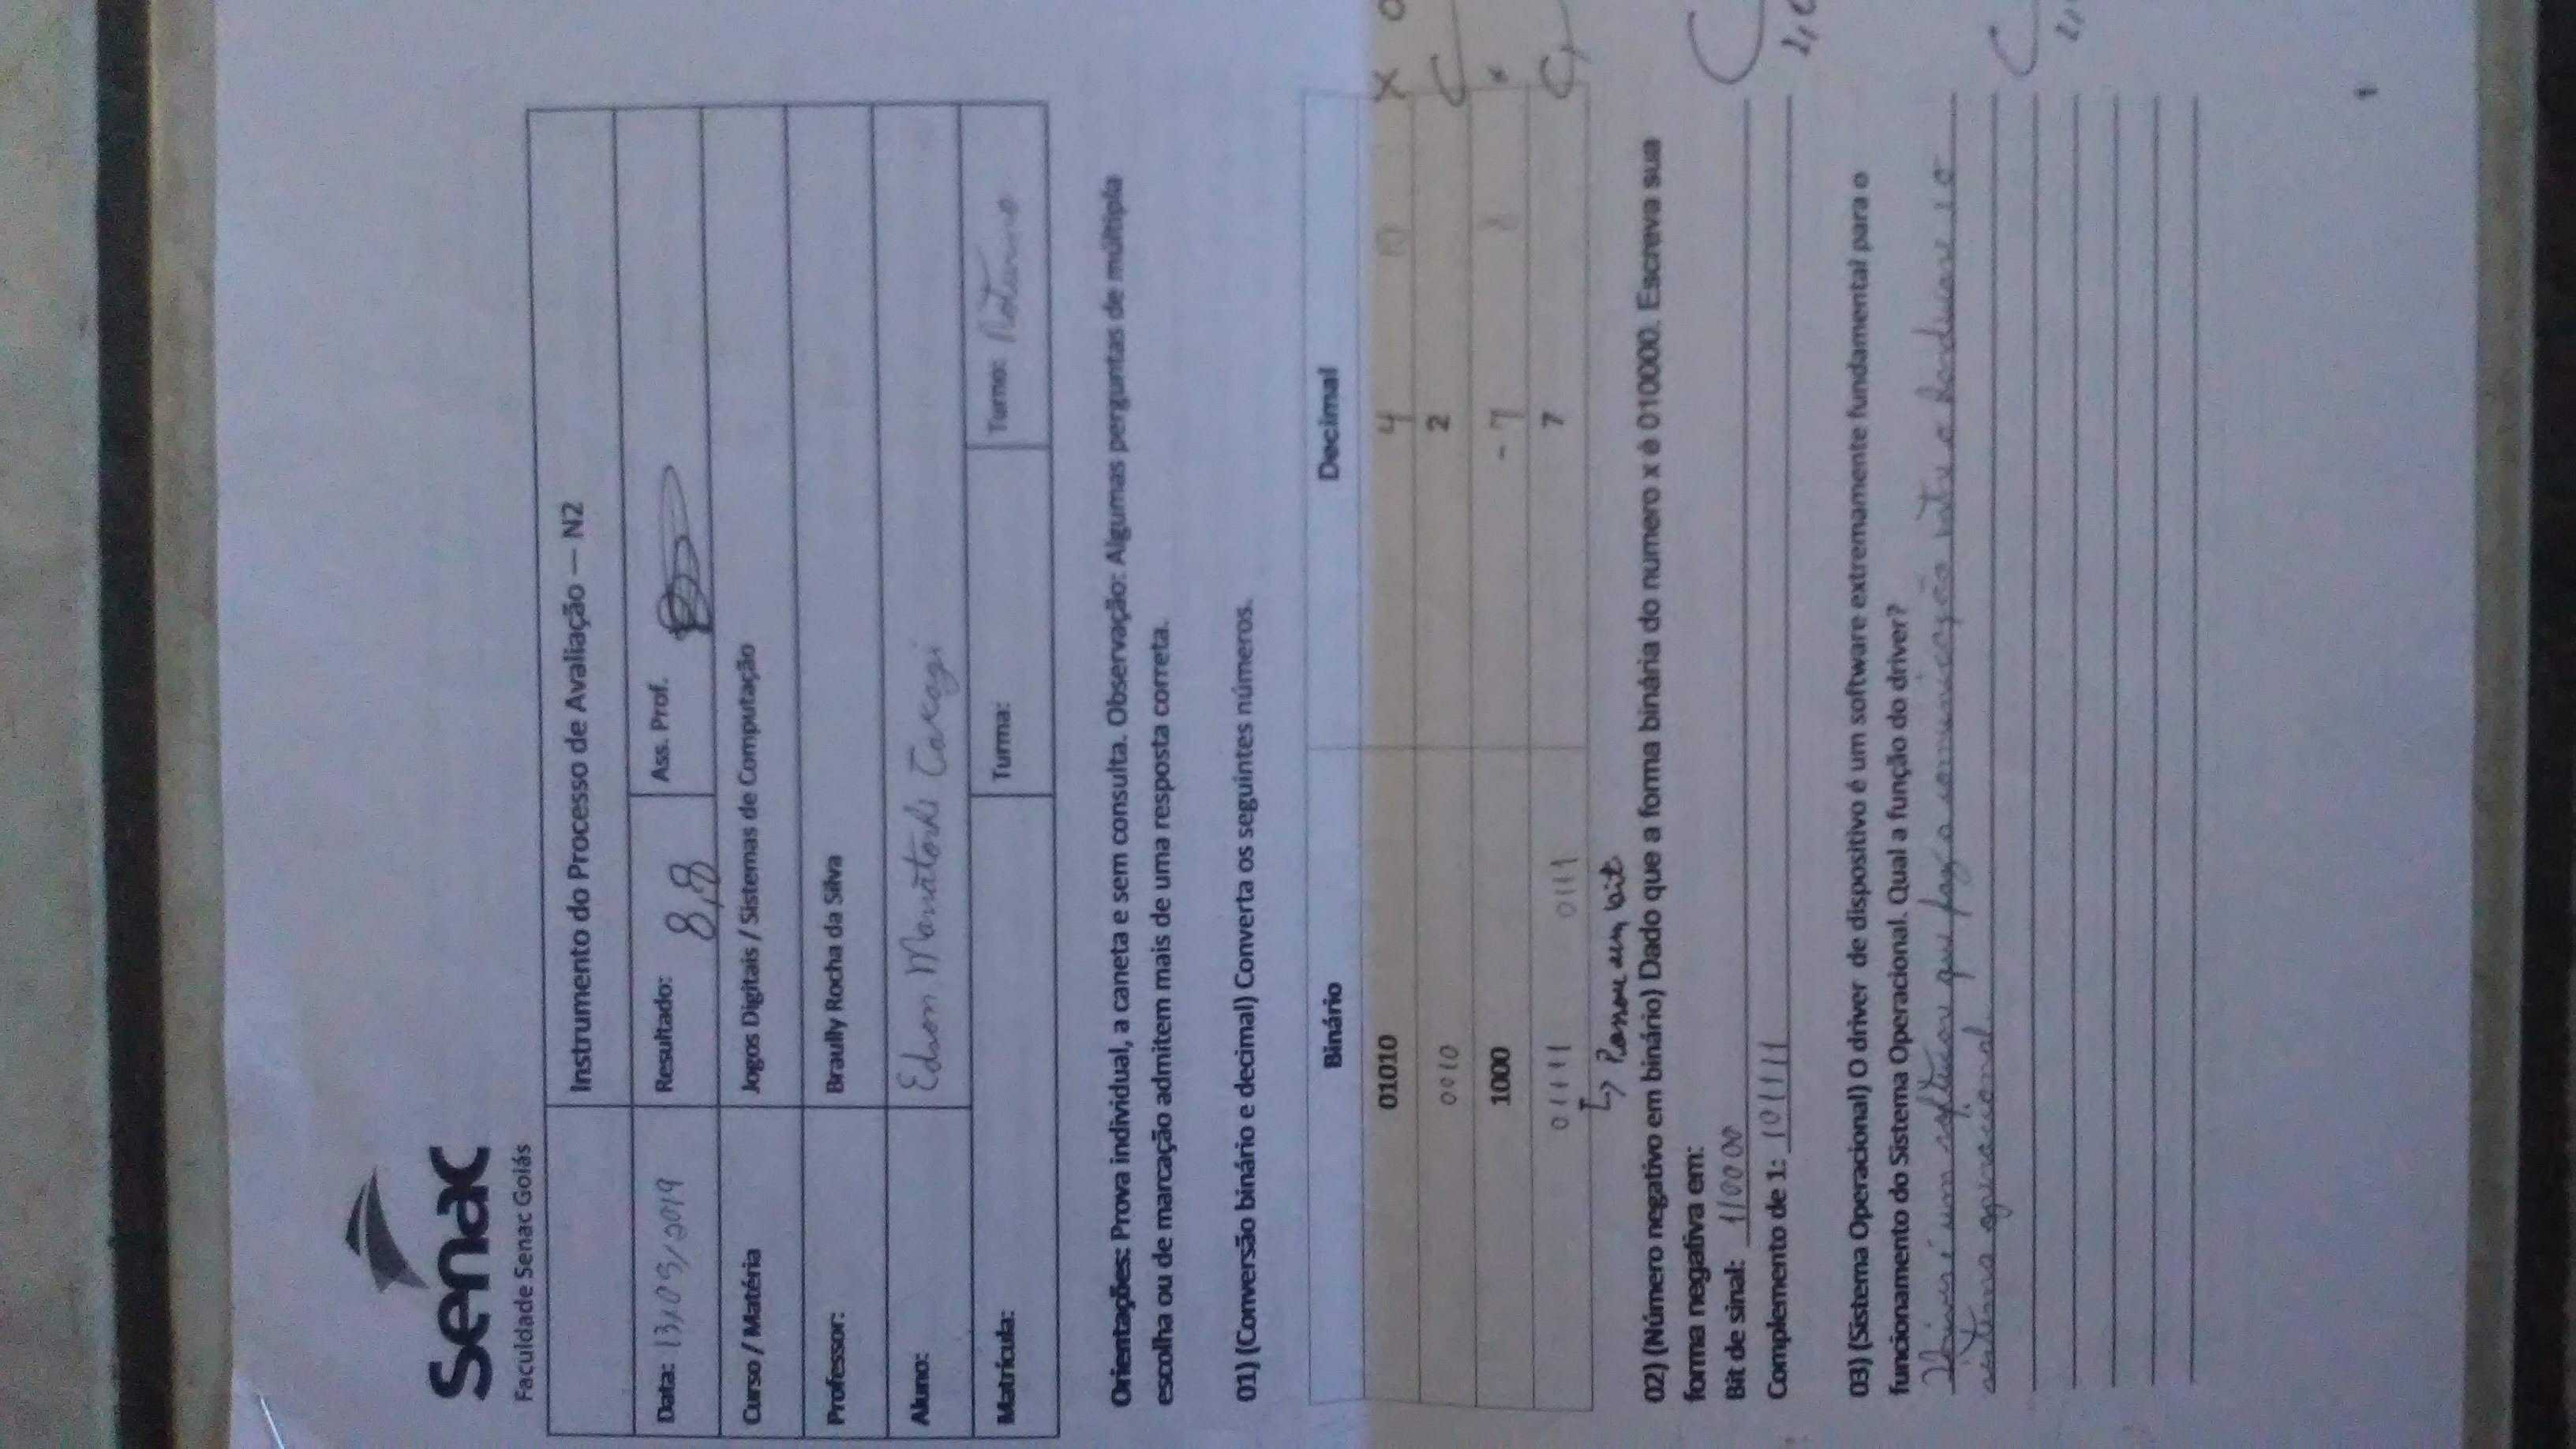 senac
Faculdade Senac Goiás
Instrumento do Processo de Avaliação – N2
Data: 13/09/2019 Resultado: 8,8 Ass. Prof.
Curso / Matéria Jogos Digitais / Sistemas de Computação
Professor: Braully Rocha da Silva
Aluno: Edson
Matrícula: Turma: Turno: Noturno
Orientações: Prova individual, a caneta e sem consulta. Observação: Algumas perguntas de múltipla
escolha ou de marcação admitem mais de uma resposta correta.
01) (Conversão binário e decimal) Converta os seguintes números.
Binário Decimal
01010 4 10 X
0010 2 C
1000 -7 8 x
01111 0111 7 C
↳ Pensou em bit
02) (Número negativo em binário) Dado que a forma binária do numero x é 010000. Escreva sua
forma negativa em:
Bit de sinal: 110000
Complemento de 1: 101111
03) (Sistema Operacional) O driver de dispositivo é um software extremamente fundamental para o
funcionamento do Sistema Operacional. Qual a função do driver?
Driver é um software que faz a comunicação entre o hardware e o
sistema operacional.
1